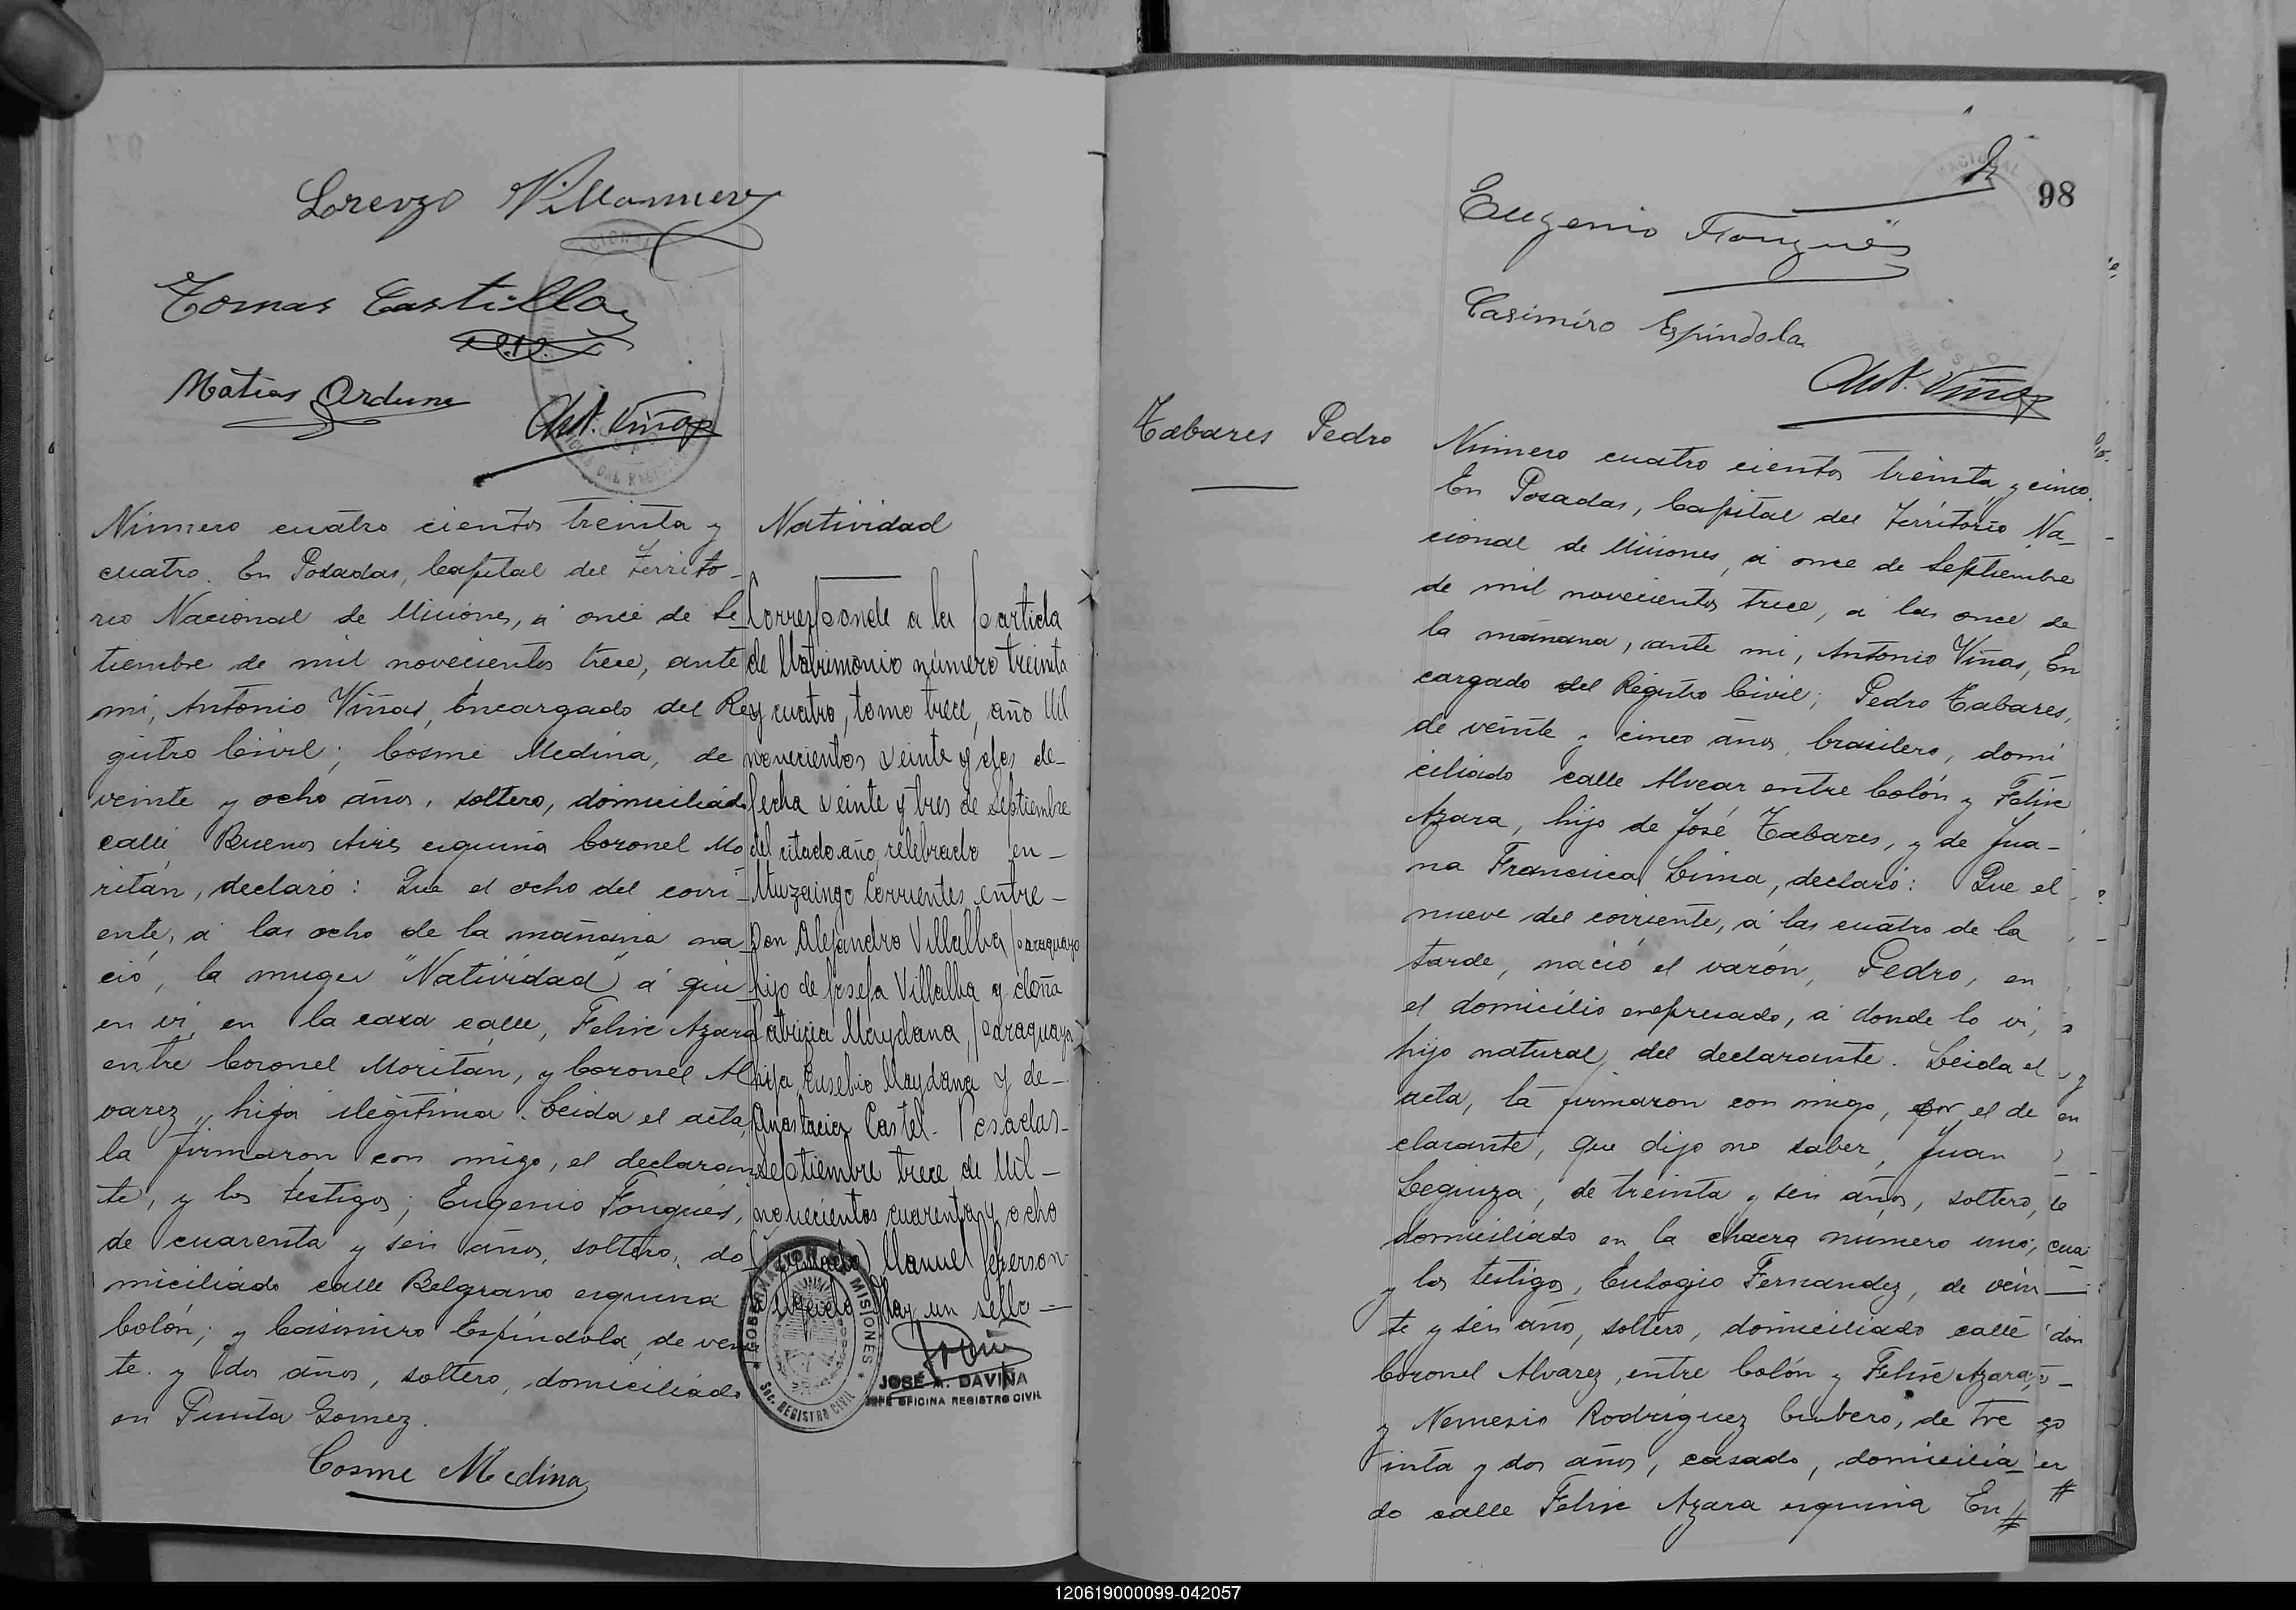 Lorenzo Villanueva
Tomas Castilla
Matias Ordune
Ant. Viñas
Número cuatro cientos treinta y
cuatro. En Posadas, Capital del Territo-
rio Nacional de Misiones, á once de Se-
tiembre de mil novecientos trece, ante
mi, Antonio Viñas, Encargado del Re-
gistro Civil; Cosme Medina, de
veinte y ocho años, soltero, domiciliado
calle Buenos Aires esquina Coronel Mo
ritán, declaró: Que el ocho del corri-
ente, á las ocho de la mañana na
ció, la muger "Natividad" á qui
en vi, en la casa calle, Felix Azara
entre Coronel Moritán, y Coronel Al
varez, hija ilegítima. Leida el acta,
la firmaron con migo, el declaran
te, y los testigos; Eugenio Fongués,
de cuarenta y seis años, soltero, do
miciliado calle Belgrano esquina
Colón; y Casimiro Espíndola, de vein
te y dos años, soltero, domiciliado
en Punta Gomez.
Cosme Medina
Natividad
Corresponde a la partida
de Matrimonio número treinta
y cuatro, tomo trece, año Mil
novecientos veinte y dos de-
fecha veinte y tres de Septiembre
del citado año, celebrado en-
Ituzaingo Corrientes, entre-
Don Alejandro Villalba, paraguayo
hijo de Josefa Villalba y doña
Patricia Maydana, paraguaya
hija, Eusebio Maydana y de-
Anastacia Castel. Posadas-
Septiembre trece de Mil-
novecientos cuarenta y ocho
(Firmado) Manuel
Hay un sello-
GOBERNACION DE MISIONES
Sec. REGISTRO CIVIL
JOSÉ A. DAVIÑA
JEFE OFICINA REGISTRO CIVIL
98
Eugenio Fongués
Casimiro Espíndola
Ant. Viñas
Tabares Pedro
Número cuatro cientos treinta y cinco.
En Posadas, Capital del Territorio Na-
cional de Misiones, á once de Septiembre
de mil novecientos trece, a las once de
la mañana, ante mi, Antonio Viñas, En
cargado del Registro Civil; Pedro Tabares,
de veinte y cinco años, brasilero, domi
ciliado calle Alvear entre Colón y Felix
Azara, hijo de José Tabares, y de Jua-
na Francisca Lima, declaró: Que el
nueve del corriente, á las cuatro de la
tarde, nació el varón, Pedro, en
el domicilio expresado, á donde lo vi,
hijo natural, del declarante. Leida el
acta, la firmaron con migo, por el de
clarante, que dijo no saber, Juan
Leguiza, de treinta y seis años, soltero,
domiciliado en la chacra número uno;
y los testigos, Eulogio Fernandez, de vein
te y seis años, soltero, domiciliado calle
Coronel Alvarez, entre Colón y Felix Azara,
y Nemesio Rodríguez Cubero, de tre
inta y dos años, casado, domicilia-
do calle Felix Azara esquina En
120619000099-042057